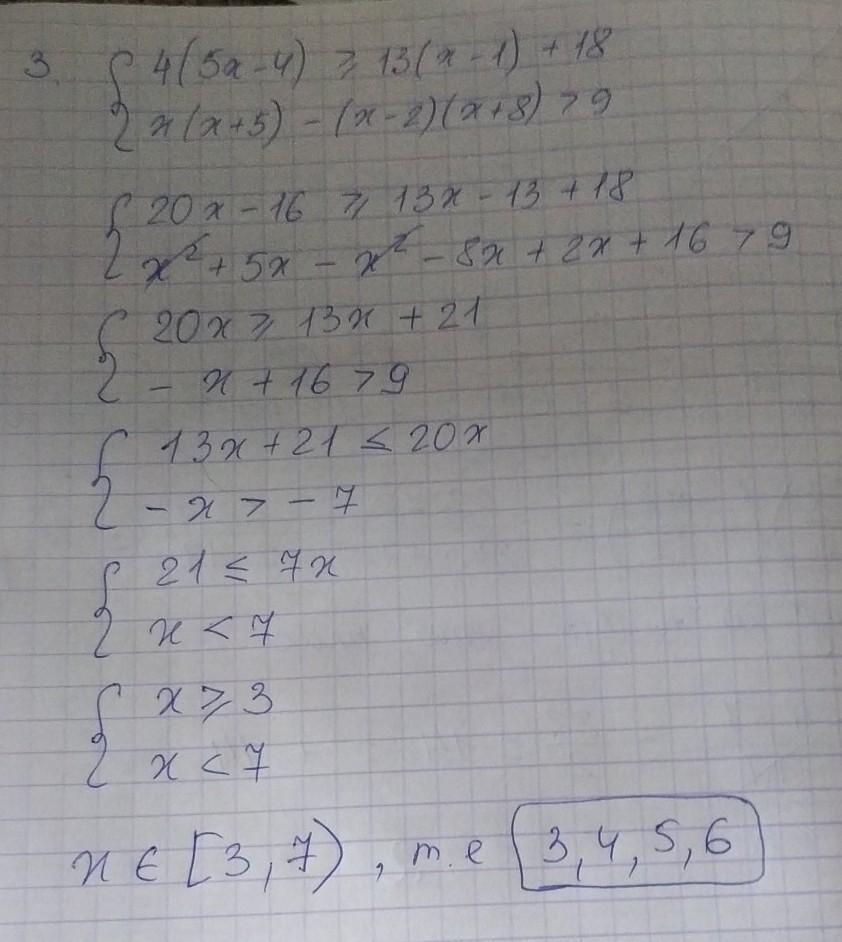 3. { 4(5x-4) ⩾ 13(x-1) + 18
x(x+5) - (x-2)(x+8) > 9
{ 20x - 16 ⩾ 13x - 13 + 18
x² + 5x - x² - 8x + 2x + 16 > 9
{ 20x ⩾ 13x + 21
- x + 16 > 9
{ 13x + 21 ≤ 20x
- x > - 7
{ 21 ≤ 7x
x < 7
{ x ⩾ 3
x < 7
x ∈ [3,7) , т.е 3,4,5,6